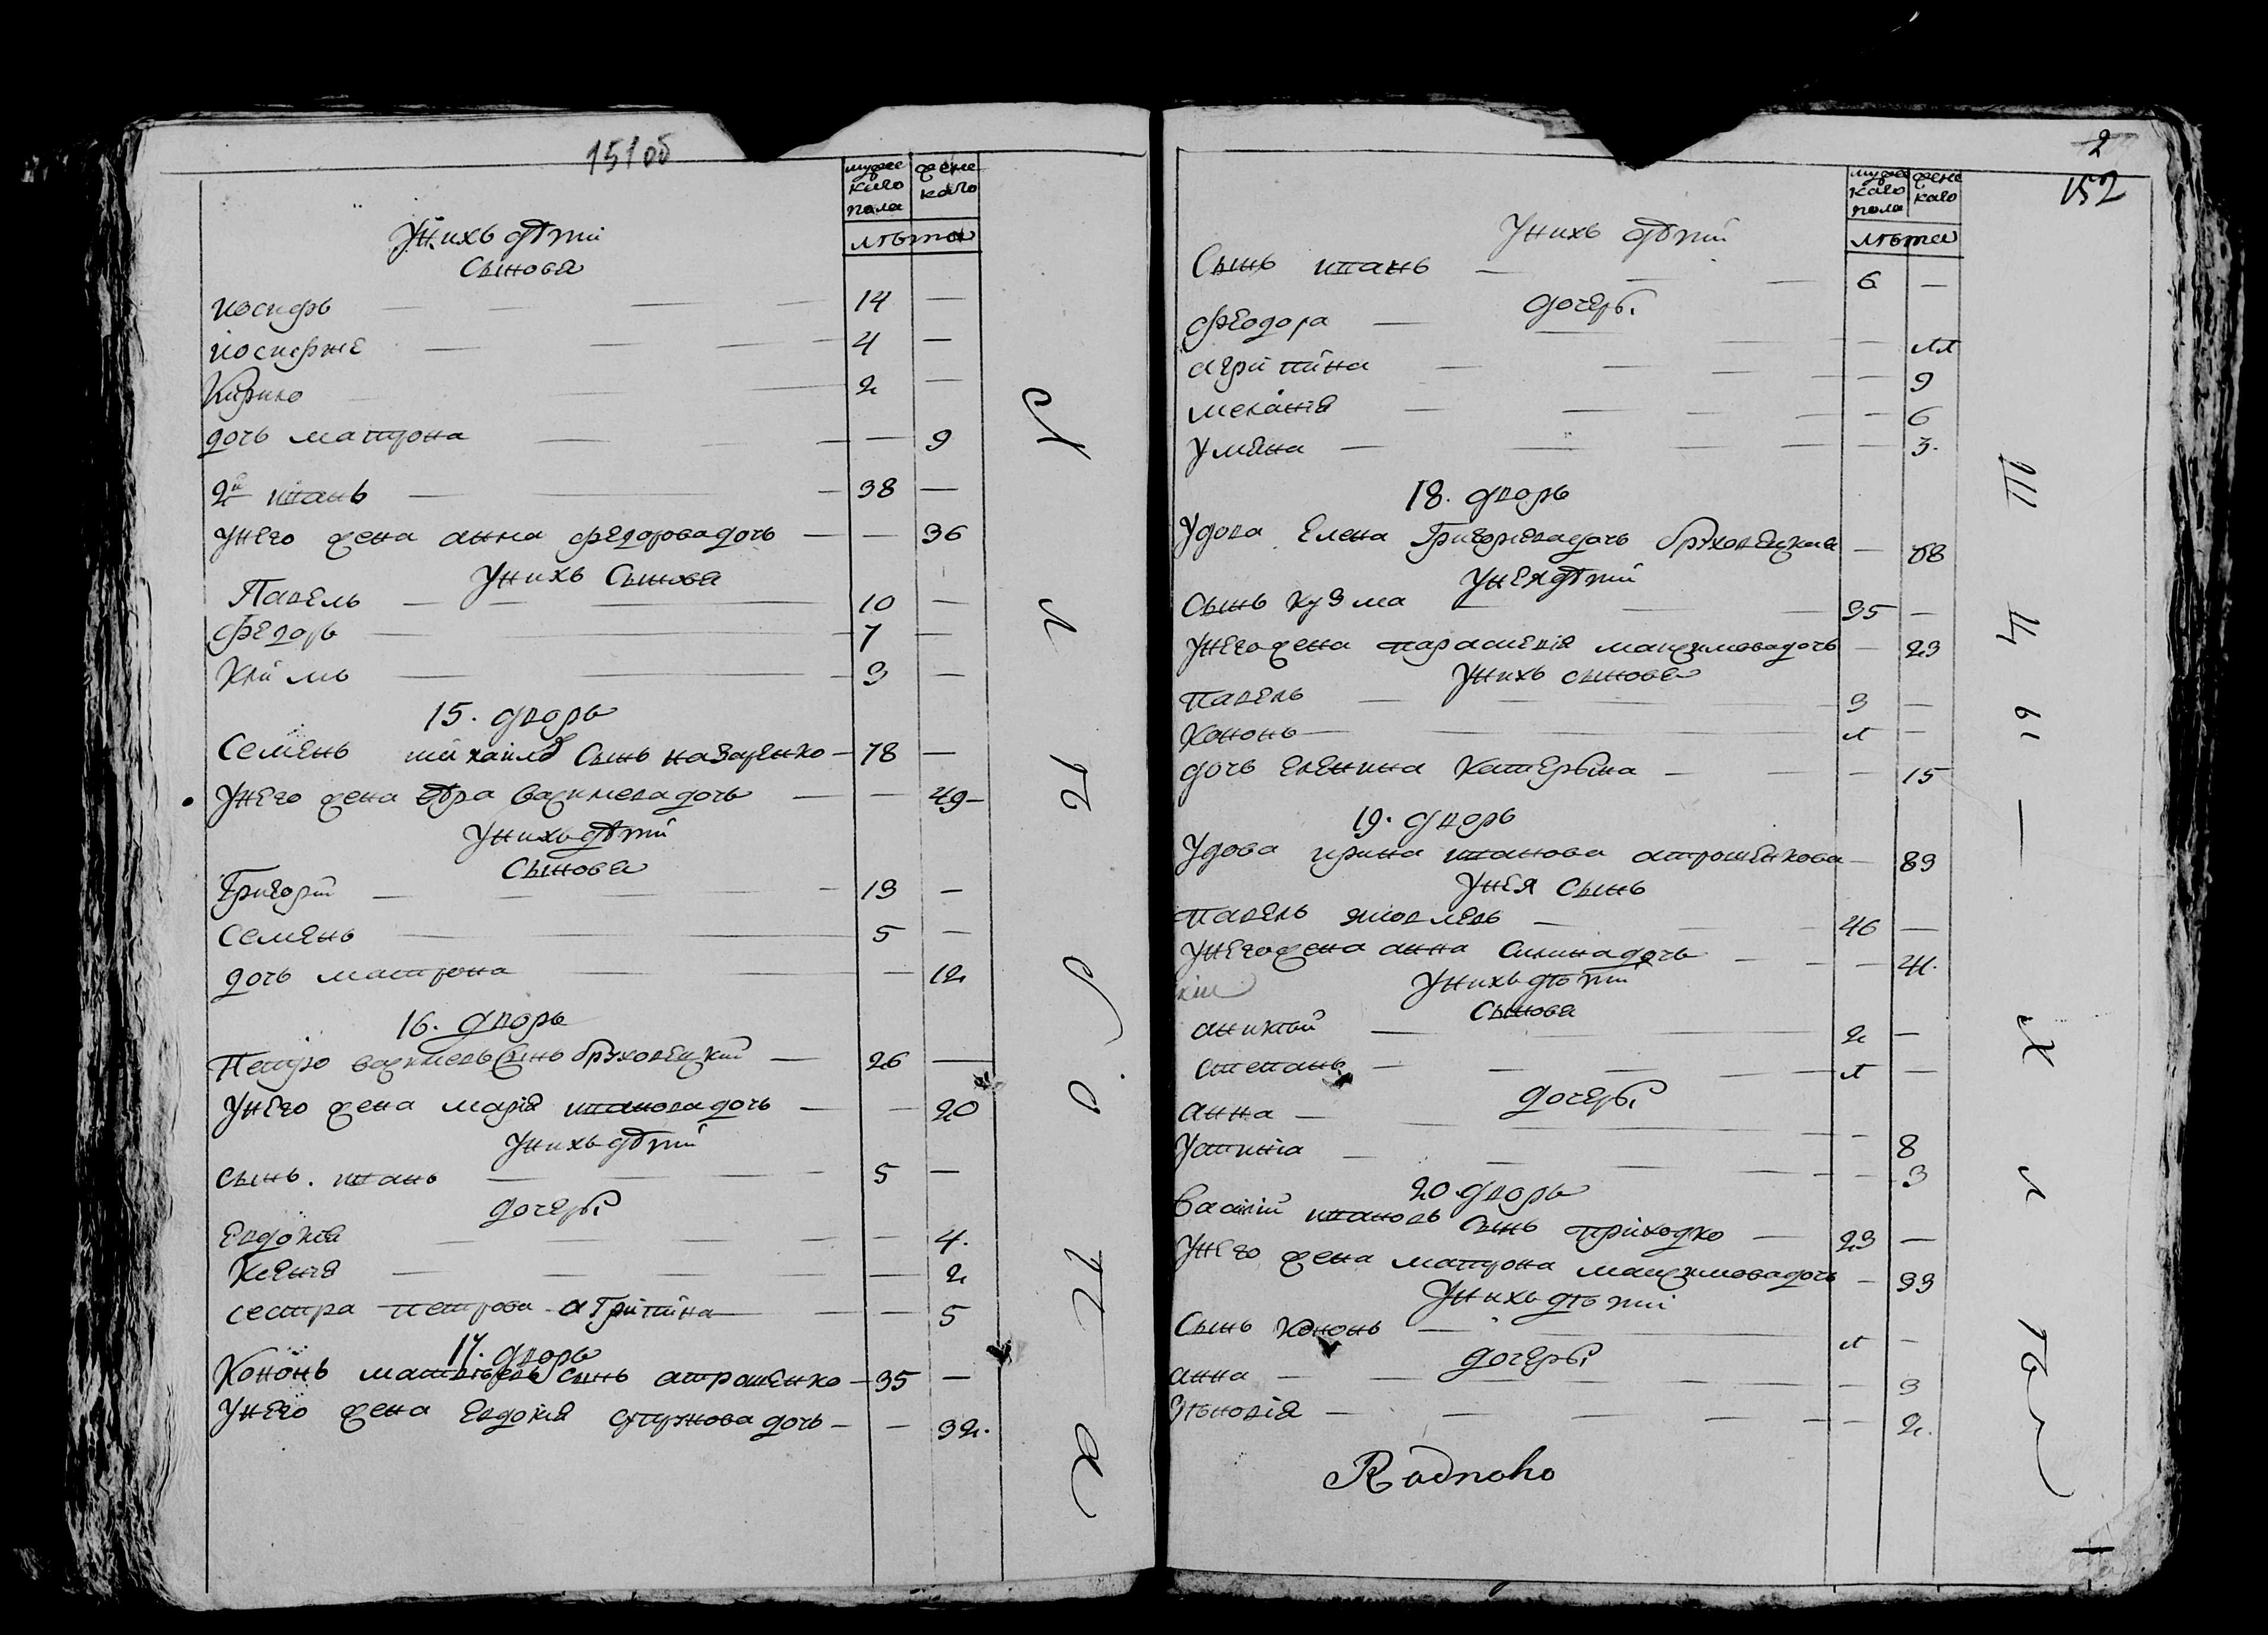 151 об
мужс каго пола
женс каго
лѣта
Унихъ дѣти
Сынова
иосифъ — 14 —
иосифже — 4 —
Кирило 2 —
дочь матрона — — 9
2й иванъ — 38 —
Унего жена анна федоровадочь — — 36
Унихъ Сынова
Павелъ — 10 —
федоръ — 7 —
Климъ — 3 —
15. дворъ
Семенъ михаиловъ Сынъ назаренко — 78 —
Унего жена Вакимова дочь — — 49 —
Унихъ дѣти
Сынова
Григорій — 13 —
Семенъ — 5 —
дочь матрона — 12
16. дворъ
Петро вакимовъ Сынъ бруховецкий — 26 —
Унего жена марія иванова дочь — — 20
Унихъ дѣти
сынъ. иванъ — 5 —
дочеры
Евдокія — — 4.
Ксенія — — 2
сестра петрова агрипина — — 5
17. дворъ
Кононъ матвѣевъ сынъ атрошенко — 35 —
Унего жена Евдокія дочь — — 32.
2
152
мужс каго пола
женс каго
лѣта
Унихъ дѣти
Сынъ иванъ — 6 —
дочеры
феодора — —
агрипина — — 9
меланія — — 6
Уляна — — 3.
18. дворъ
Удова Елена Григориевадочь бруховецкая — 68
Унея дѣти
Сынъ кузма — 35 —
Унегожена параскевія максимовадочь — 23
Унихъ сынова
павелъ — 3 —
Кононъ — —
дочь еленина Катерына — — 15
19. дворъ
Удова ирина иванова атрошенкова — 83
Унея сынъ
павелъ яковлевъ — 46 —
Унегожена анна Силинадочь — — 41.
Унихъ дѣти
Сынова
аникій — 2 —
степанъ — —
дочеры
анна — — 8
Устинія — — 3
20 дворъ
Василій ивановъ Сынъ приходко — 23 —
Унего жена матрона максимовадочь — 33
Унихъ дѣти
Сынъ Кононъ — —
дочеры
анна — — 3
Зѣновія — — 2.